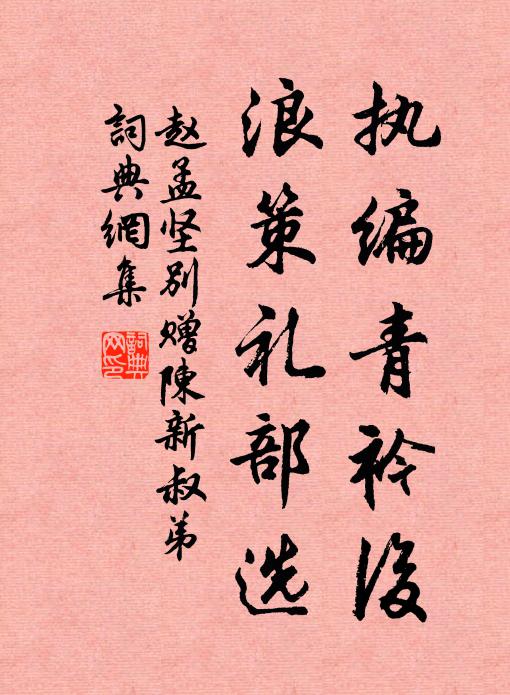 执编青衿後
浪策礼部选
赵孟坚别赠陳新叔弟
詞典網集
詞典網印